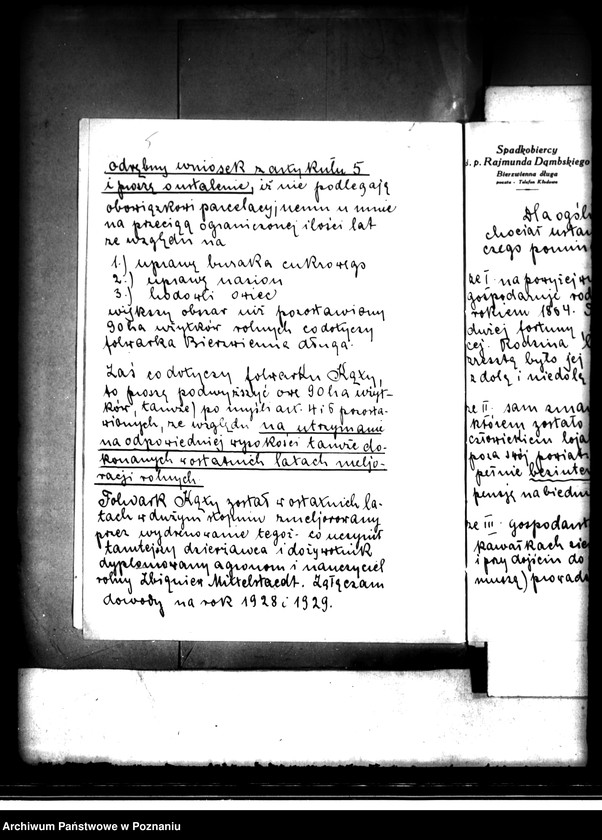 odrębny wniosek z artykułu 5
i proszę o ustalenie, iż nie podlegają
obowiązkowi parcelacyjnemu u mnie
na przeciąg ograniczonej ilości lat
ze względu na
1.) uprawę buraka cukrowego
2.) uprawę nasion
3.) hodowli owiec
większy obszar niż pozostawiony
90 ha użytków rolnych co dotyczy
folwarka Bierzwienna długa.
Zaś co dotyczy folwarku Kęxy,
to proszę podwyższyć owe 90 ha użyt-
ków, tamże) po myśli art. 4 i 6 pozosta-
wionych, ze względu na utrzymanie
na odpowiedniej wysokości tamże do-
konanych w ostatnich latach meljo-
racji rolnych
Folwark Kęxy został w ostatnich la-
tach w dużym stopniu zmeljorowany
przez wydrenowanie tegoż - co uczynił
tamtejszy dzierżawca i dożywotnik
dyplomowany agronom i nauczyciel
rolny Zbigniew Mittelstaedt. Załączam
dowody na rok 1928 i 1929.
Spadkobiercy
ś. p. Rajmunda Dąmbskiego
Bierzwienna długa
poczta - Telefon Kłodawa
Dla ogól
chociaż usta
czego pomin
ze I. na powyżej w
gospodaruje rod
rokiem 1864.
dużej fortuny
cej. Rodzina
zresztą było jej
z dolą i niedolą
ze II. sam zma
którem zostało
człowiekiem loja
poza swój powiat
pełnie bezinter
pensję na biedn
ze III. gospodarst
kawałkach zie
i przy dojściu do
muszą) prowad
Archiwum Państwowe w Poznaniu